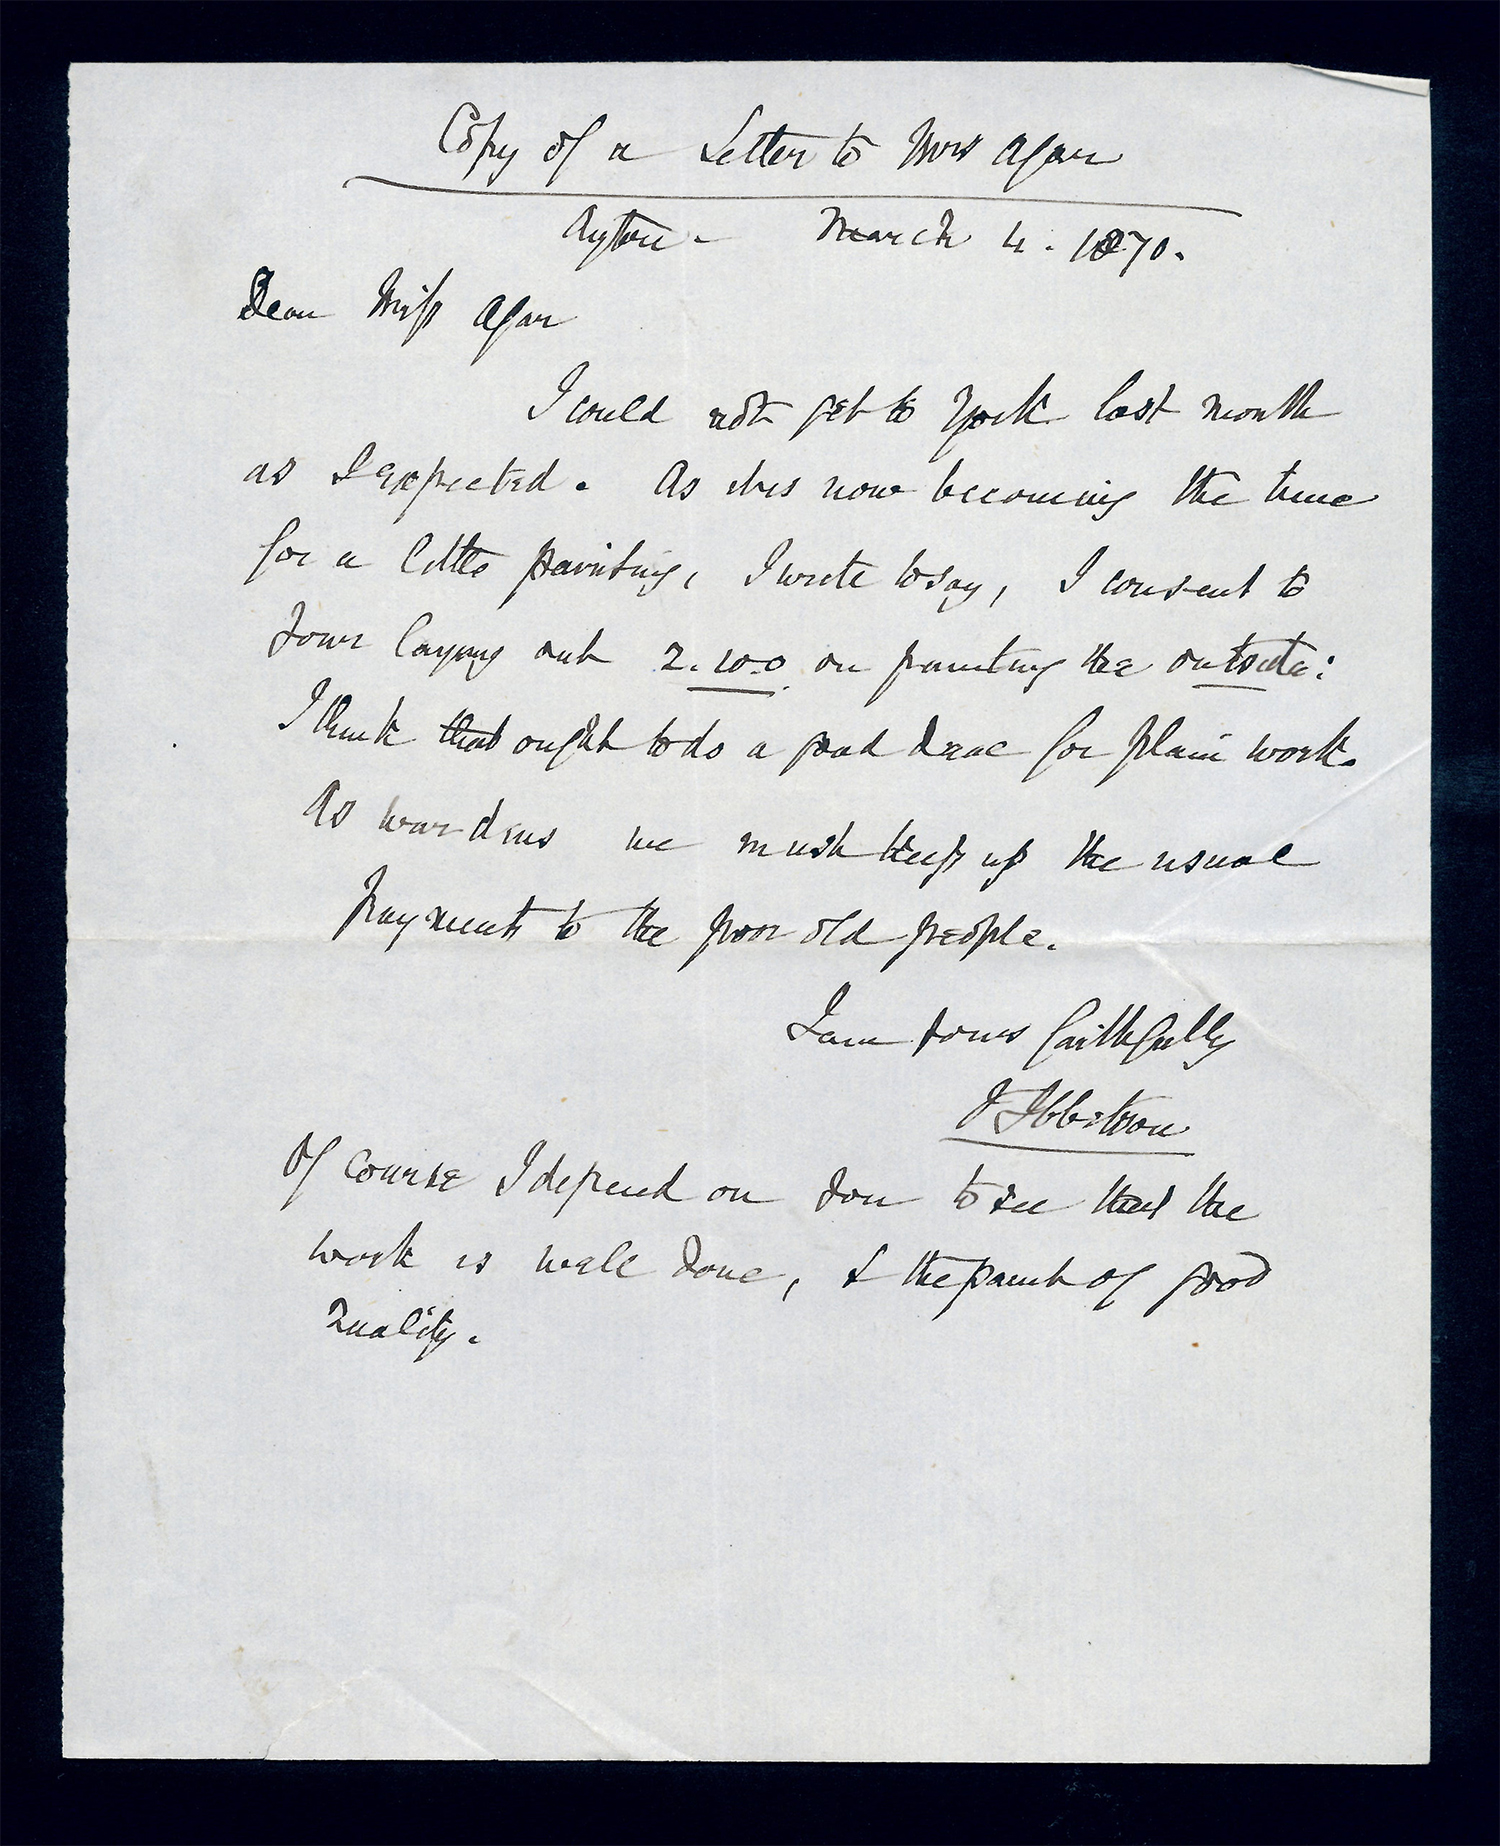 Copy of a Letter to Mrs Agar
Ayton - March 4. 1870.
Dear Miss Agar
I could not get to York last month
as I expected. As it is now becoming the time
for a little painting, I write to say, I consent to
your laying out 2.10.0 on painting the outside:
I think that ought to do a good deal for plain work.
As wardens we must keep up the usual
payments to the poor old people.
I am yours faithfully
J Ibbetson
Of course I depend on you to see that the
work is well done, & the paint of good
quality.